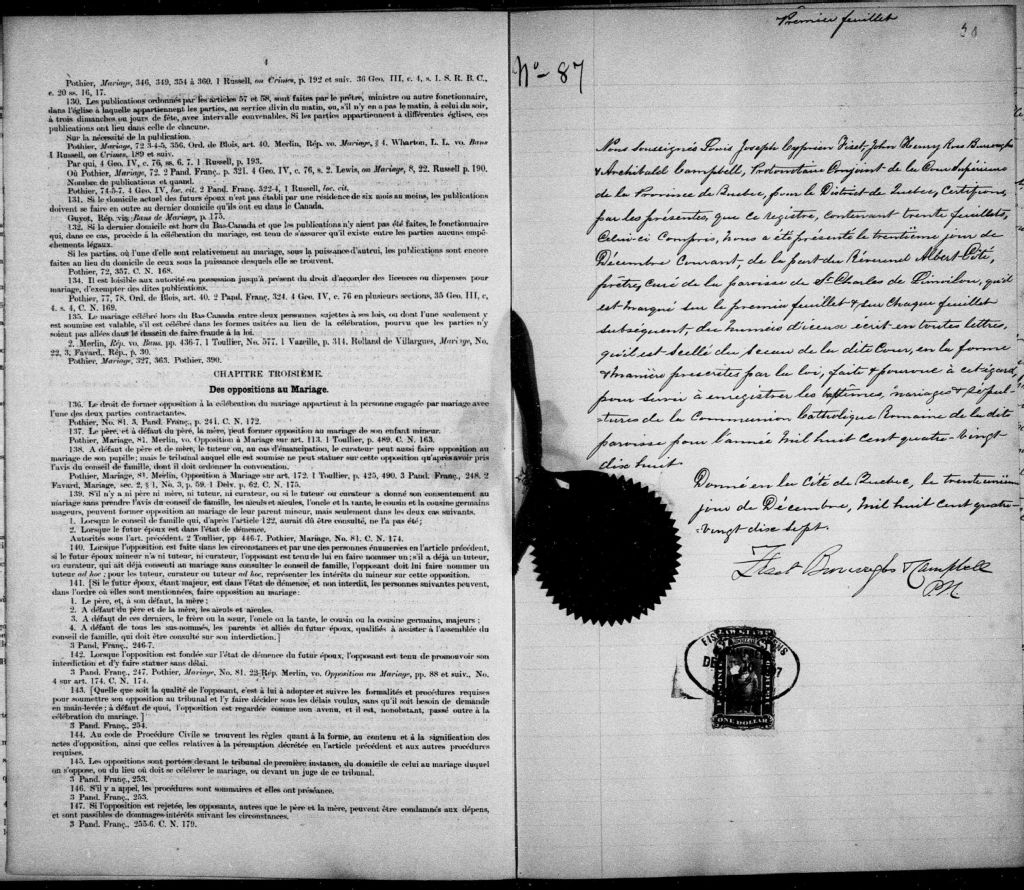 4
Pothier, Mariage, 346, 349, 354 à 360. 1 Russell, on Crimes, p. 192 et suiv. 36 Geo. III, c. 4, s. 1. S. R. B. C.,
c. 20 ss. 16, 17.
130. Les publications ordonnés par les articles 57 et 58, sont faites par le prêtre, ministre ou autre fonctionnaire,
dans l'église à laquelle appartiennent les parties, au service divin du matin, ou, s'il n'y en a pas le matin, à celui du soir,
à trois dimanches ou jours de fête, avec intervalle convenables. Si les parties appartiennent à différentes églises, ces
publications ont lieu dans celle de chacune.
Sur la nécessité de la publication.
Pothier, Mariage, 72 3-4-5, 356. Ord. de Blois, art. 40. Merlin, Rép. vo. Mariage, § 4. Wharton, L. L. vo. Bans
1 Russell, on Crimes, 189 et suiv.
Par qui, 4 Geo. IV, c. 76, ss. 6. 7. 1 Russell, p. 193.
Où Pothier, Mariage, 72. 2 Pand. Franç. p. 321. 4 Geo. IV, c. 76, s. 2. Lewis, on Mariage, 8, 22. Russell p. 190.
Nombre de publications et quand.
Pothier, 74-5-7. 4 Geo. IV, loc. cit. 2 Pand. Franç. 322-4, 1 Russell, loc. cit.
131. Si le domicile actuel des futurs époux n'est pas établi par une résidence de six mois au moins, les publications
doivent se faire en outre au dernier domicile qu'ils ont eu dans le Canada.
Guyot, Rép. vis. Bans de Mariage, p. 175.
132. Si la dernier domicile est hors du Bas-Canada et que les publications n'y aient pas été faites, le fonctionnaire
qui, dans ce cas, procède à la célébration du mariage, est tenu de s'assurer qu'il existe entre les parties aucuns empê-
chements légaux.
Si les parties, où l'une d'elle sont relativement au mariage, sous la puissance d'autrui, les publications sont encore
faites au lieu du domicile de ceux sous la puissance desquels elle se trouvent.
Pothier, 72, 357. C. N. 168.
134. Il est loisible aux autorité en possession jusqu'à présent du droit d'accorder des licences ou dispenses pour
mariage, d'exempter des dites publications.
Pothier, 77, 78. Ord. de Blois, art. 40. 2 Pand. Franç. 324. 4 Geo. IV, c. 76 en plusieurs sections, 35 Geo. III, c,
4. s. 4, C. N. 169.
135. Le mariage célébré hors du Bas-Canada entre deux personnes sujettes à ses lois, ou dont l'une seulement y
est soumise est valable, s'il est célébré dans les formes usitées au lieu de la célébration, pourvu que les parties n'y
soient pas allées dans le dessein de faire fraude à la loi.
2. Merlin, Rép. vo. Bans. pp. 436-7. 1 Toullier, No. 577. 1 Vazeille, p. 314. Rolland de Villargues, Mariage, No.
22, 3. Favard. Rép., p. 30.
Pothier, Mariage, 327, 363. Pothier, 390.
CHAPITRE TROISIÈME.
Des oppositions au Mariage.
136. Le droit de former opposition à la célébration du mariage appartient à la personne engagée par mariage avec
l'une des deux parties contractantes.
Pothier, No. 81. 3. Pand. Franç., p. 241. C. N. 172.
137. Le père, et à défaut du père, la mère, peut former opposition au mariage de son enfant mineur.
Pothier, Mariage, 81. Merlin, vo. Opposition à Mariage sur art. 113. 1 Toullier, p. 489. C. N. 163.
138. A défaut de père et de mère, le tuteur ou, au cas d'émancipation, le curateur peut aussi faire opposition au
mariage de son pupille; mais le tribunal auquel elle est soumise ne peut statuer sur cette opposition qu'après avoir pris
l'avis du conseil de famille, dont il doit ordonner la convocation.
Pothier, Mariage, 81. Merlin, Opposition à Mariage sur art. 172. 1 Toullier, p. 425, 490. 3 Pand. Franç., 248. 2
Favard, Mariage, sec. 2, § 1, No. 3, p. 59. 1 Delv. p. 62. C. N. 175.
139. S'il n'y a ni père ni mère, ni tuteur, ni curateur, ou si le tuteur ou curateur a donné son consentement au
mariage sans prendre l'avis du conseil de famille, les aïeuls et aïeules, l'oncle et la tante, le cousin et la cousine germains
mageurs, peuvent former opposition au mariage de leur parent mineur, mais seulement dans les deux cas suivants.
1. Lorsque le conseil de famille qui, d'après l'article 122, aurait dû être consulté, ne l'a pas été;
2. Lorsque le futur époux est dans l'état de démence.
Autorités sous l'art. précédent. 2 Toullier, pp 446-7. Pothier, Mariage, No. 81. C. N. 174.
140. Lorsque l'opposition est faite dans les circonstances et par une des personnes énumérées en l'article précédent,
si le futur époux mineur n'a ni tuteur, ni curateur, l'opposant est tenu de lui en faire nommer un; s'il a déjà un tuteur,
ou curateur, qui ait déjà consenti au mariage sans consulter le conseil de famille, l'opposant doit lui faire nommer un
tuteur ad hoc; pour les tuteur, curateur ou tuteur ad hoc, représenter les intérêts du mineur sur cette opposition.
141. [Si le futur époux, étant majeur, est dans l'état de démence, et non interdit, les personnes suivantes peuvent,
dans l'ordre où elles sont mentionnées, faire opposition au mariage:
1. Le père, et, à son défaut, la mère;
2. A défaut du père et de la mère, les aïeuls et aïeules.
3. A défaut de ces derniers, le frère ou la sœur, l'oncle ou la tante, le cousin ou la cousine germains, majeurs;
4. A défaut de tous les sus-nommés, les parents et alliés du futur époux, qualifiés à assister à l'assemblée du
conseil de famille, qui doit être consulté sur son interdiction.]
3 Pand. Franç., 246-7.
142. Lorsque l'opposition est fondée sur l'état de démence du futur époux, l'opposant est tenu de promouvoir son
interdiction et d'y faire statuer sans délai.
3 Pand. Franç., 247. Pothier, Mariage, No. 81. 22 Rép. Merlin, vo. Opposition au Mariage, pp. 88 et suiv., No.
4 sur art. 174. C. N. 174.
143. [Quelle que soit la qualité de l'opposant, c'est à lui à adopter et suivre les formalités et procédures requises
pour soumettre son opposition au tribunal et l'y faire décider sous les délais voulus, sans qu'il soit besoin de demande
en main-levée; à défaut de quoi, l'opposition est regardée comme non avenu, et il est, nonobstant, passé outre à la
célébration du mariage.]
3 Pand. Franç., 254.
144. Au code de Procédure Civile se trouvent les règles quant à la forme, au contenu et à la signification des
actes d'opposition, ainsi que celles relatives à la péremption décrétée en l'article précédent et aux autres procédures
requises.
145. Les oppositions sont portées devant le tribunal de première instance, du domicile de celui au mariage duquel
on s'oppose, ou du lieu où doit se célébrer le mariage, ou devant un juge de ce tribunal.
3 Pand. Franç., 253.
146. S'il y a appel, les procédures sont sommaires et elles ont préséance.
3 Pand. Franç., 253.
147. Si l'opposition est rejetée, les opposants, autres que le père et la mère, peuvent être condamnés aux dépens,
et sont passibles de dommages-intérêts suivant les circonstances.
3 Pand. Franç., 255-6. C. N. 179.
Premier feuillet
30
No- 87
Nous Soussignés Louis Joseph Cyprien Fiset, John Henry Ross Burroughs
& Archibald Campbell, Protonotaire Conjoint de la Cour Supérieure
de la Province de Quebec, pour le District de Quebec, Certifions
par les présentes, que ce registre, contenant trente feuillets,
Celui-ci Compris, nous a été présenté le trentième jour de
Décembre Courant, de la part du Réverend Albert Côté,
prêtre, Curé de la paroisse de St Charles de Limoilou, qu'il
est marqué sur le premier feuillet & sur Chaque feuillet
subséquent, du Numéro d'iceux écrit en toutes lettres,
qu'il est scellé du Sceau de la dite Cour, en la forme
& manière prescrites par la loi, faite & pourvue à cet égard,
pour servir à enregistrer les baptêmes, mariages & Sépul-
tures de la Communion Catholique Romaine de la dite
paroisse pour l'année Mil huit Cent quatre-Vingt
dix huit.
Donné en la Cité de Quebec, le trente unième
jour de Décembre, Mil huit Cent quatre-
vingt dix sept.
Fiset Burroughs & Campbell
PCS
LAW STAMP
ONE DOLLAR